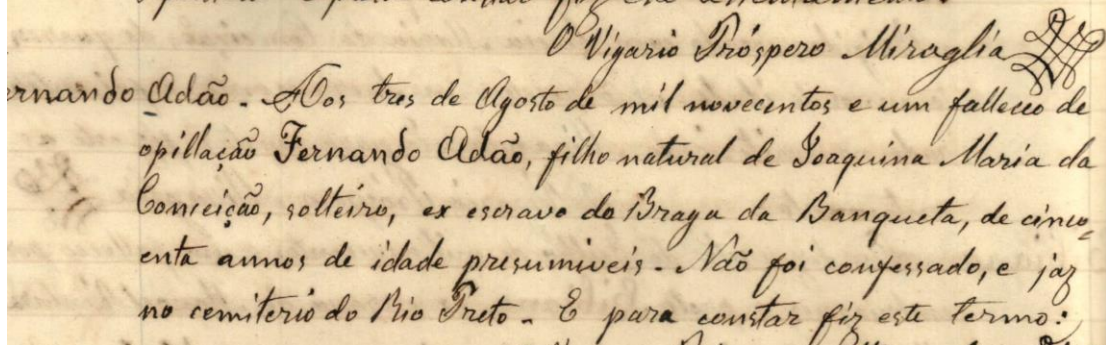 O Vigario Próspero Miraglia
ernando Adão. Aos tres de Agosto de mil novecentos e um falleceu de
opillação Fernando Adão, filho natural de Joaquina Maria da
Conceição, solteiro, ex escravo do Braga da Banqueta, de cinco
enta annos de idade presumiveis. Não foi confessado, e jaz
no cemiterio do Rio Preto. E para constar fiz este termo: